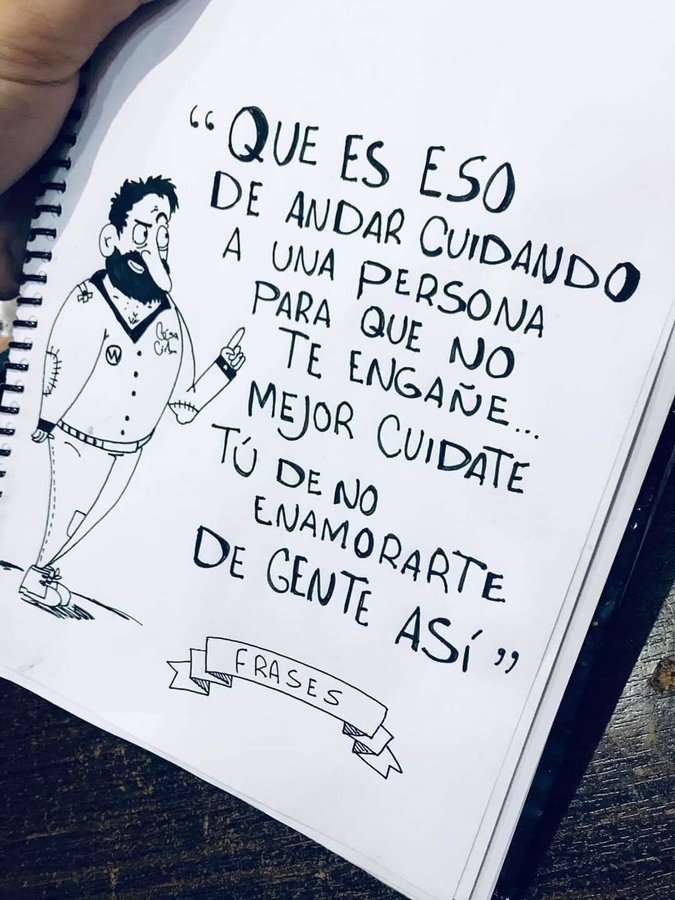 “QUE ES ESO
DE ANDAR CUIDANDO
A UNA PERSONA
PARA QUE NO
TE ENGAÑE...
MEJOR CUIDATE
TÚ DE NO
ENAMORARTE
DE GENTE ASÍ”
W
FRASES